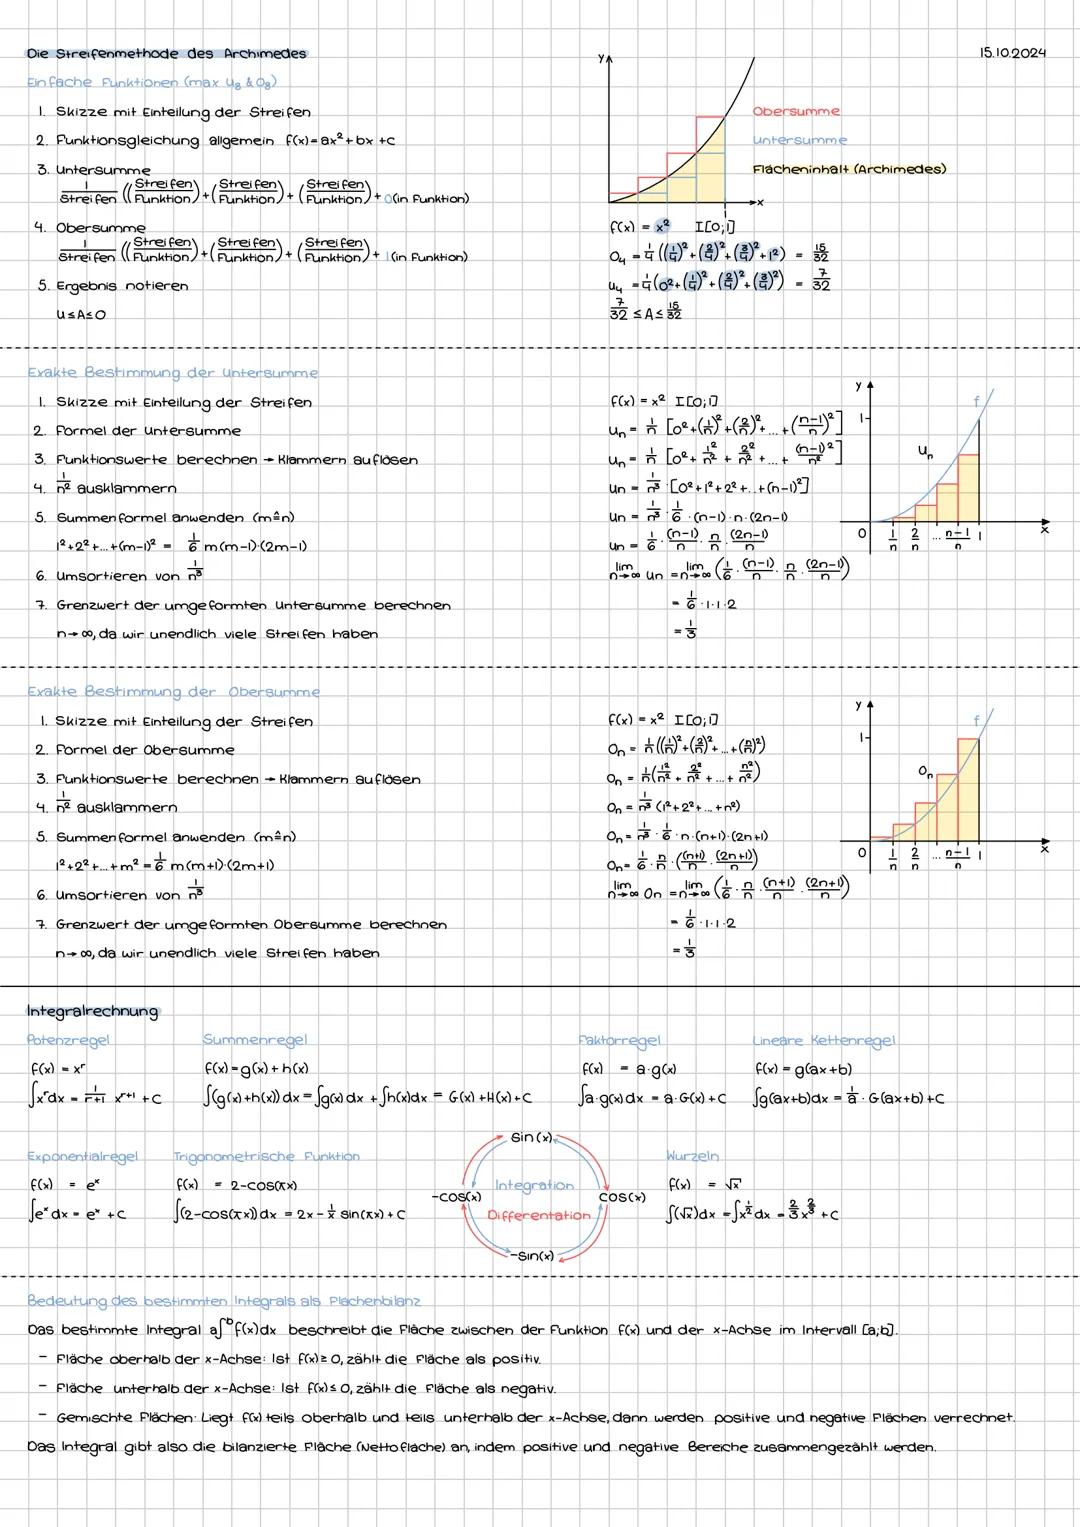 Die Streifenmethode des Archimedes
15.10.2024
Einfache Funktionen (max U₈ & O₈)
1. Skizze mit Einteilung der Streifen
2. Funktionsgleichung allgemein f(x) = ax² + bx + c
3. Untersumme
1/Streifen ((Streifen/Funktion) + (Streifen/Funktion) + (Streifen/Funktion) + 0 (in Funktion)
4. Obersumme
1/Streifen ((Streifen/Funktion) + (Streifen/Funktion) + (Streifen/Funktion) + 1 (in Funktion)
5. Ergebnis notieren
U ≤ A ≤ O
y
x
1
Obersumme
Untersumme
Flächeninhalt (Archimedes)
f(x) = x² I[0;1]
O₄ = 1/4 ((1/4)² + (2/4)² + (3/4)² + 1²) = 15/32
U₄ = 1/4 (0² + (1/4)² + (2/4)² + (3/4)²) = 7/32
7/32 ≤ A ≤ 15/32
Exakte Bestimmung der Untersumme
1. Skizze mit Einteilung der Streifen
2. Formel der Untersumme
3. Funktionswerte berechnen → Klammern auflösen
4. 1/n² ausklammern
5. Summenformel anwenden (m≙n)
1² + 2² + ... + (m-1)² = 1/6 m(m-1)·(2m-1)
6. Umsortieren von 1/n³
7. Grenzwert der umgeformten Untersumme berechnen
n → ∞, da wir unendlich viele Streifen haben
f(x) = x² I[0;1]
Uₙ = 1/n [0² + (1/n)² + (2/n)² + ... + (n-1/n)²]
Uₙ = 1/n [0² + 1²/n² + 2²/n² + ... + (n-1)²/n²]
Un = 1/n³ · [0² + 1² + 2² + ... + (n-1)²]
Un = 1/n³ · 1/6 · (n-1) · n · (2n-1)
Un = 1/6 · (n-1)/n · n/n · (2n-1)/n
lim n→∞ Un = lim n→∞ (1/6 · (n-1)/n · n/n · (2n-1)/n)
= 1/6 · 1 · 1 · 2
= 1/3
y
1
f
Uₙ
0 1/n 2/n ... n-1/n 1 x
Exakte Bestimmung der Obersumme
1. Skizze mit Einteilung der Streifen
2. Formel der Obersumme
3. Funktionswerte berechnen → Klammern auflösen
4. 1/n² ausklammern
5. Summenformel anwenden (m≙n)
1² + 2² + ... + m² = 1/6 m(m+1)·(2m+1)
6. Umsortieren von 1/n³
7. Grenzwert der umgeformten Obersumme berechnen
n → ∞, da wir unendlich viele Streifen haben
f(x) = x² I[0;1]
Oₙ = 1/n ((1/n)² + (2/n)² + ... + (n/n)²)
Oₙ = 1/n (1²/n² + 2²/n² + ... + n²/n²)
Oₙ = 1/n³ (1² + 2² + ... + n²)
Oₙ = 1/n³ · 1/6 · n · (n+1) · (2n+1)
Oₙ = 1/6 · n/n · ((n+1)/n · (2n+1)/n)
lim n→∞ On = lim n→∞ (1/6 · n/n · (n+1)/n · (2n+1)/n)
= 1/6 · 1 · 1 · 2
= 1/3
y
1
f
Oₙ
0 1/n 2/n ... n-1/n 1 x
Integralrechnung
Potenzregel
f(x) = xʳ
∫xʳdx = 1/r+1 xʳ⁺¹ + C
Summenregel
f(x) = g(x) + h(x)
∫(g(x)+h(x))dx = ∫g(x)dx + ∫h(x)dx = G(x) + H(x) + C
Faktorregel
f(x) = a·g(x)
∫a·g(x)dx = a·G(x) + C
Lineare Kettenregel
f(x) = g(ax+b)
∫g(ax+b)dx = 1/a · G(ax+b) + C
Exponentialregel
f(x) = eˣ
∫eˣdx = eˣ + C
Trigonometrische Funktion
f(x) = 2-cos(πx)
∫(2-cos(πx))dx = 2x - 1/π sin(πx) + C
sin(x)
-cos(x)
Integration
Differentation
cos(x)
-sin(x)
Wurzeln
f(x) = √x
∫(√x)dx = ∫x^(1/2) dx = 2/3 x^(2/3) + C
Bedeutung des bestimmten Integrals als Flächenbilanz
Das bestimmte Integral a∫ᵇ f(x)dx beschreibt die Fläche zwischen der Funktion f(x) und der x-Achse im Intervall [a;b].
- Fläche oberhalb der x-Achse: Ist f(x) ≥ 0, zählt die Fläche als positiv.
- Fläche unterhalb der x-Achse: Ist f(x) ≤ 0, zählt die Fläche als negativ.
- Gemischte Flächen: Liegt f(x) teils oberhalb und teils unterhalb der x-Achse, dann werden positive und negative Flächen verrechnet.
Das Integral gibt also die bilanzierte Fläche (Nettofläche) an, indem positive und negative Bereiche zusammengezählt werden.